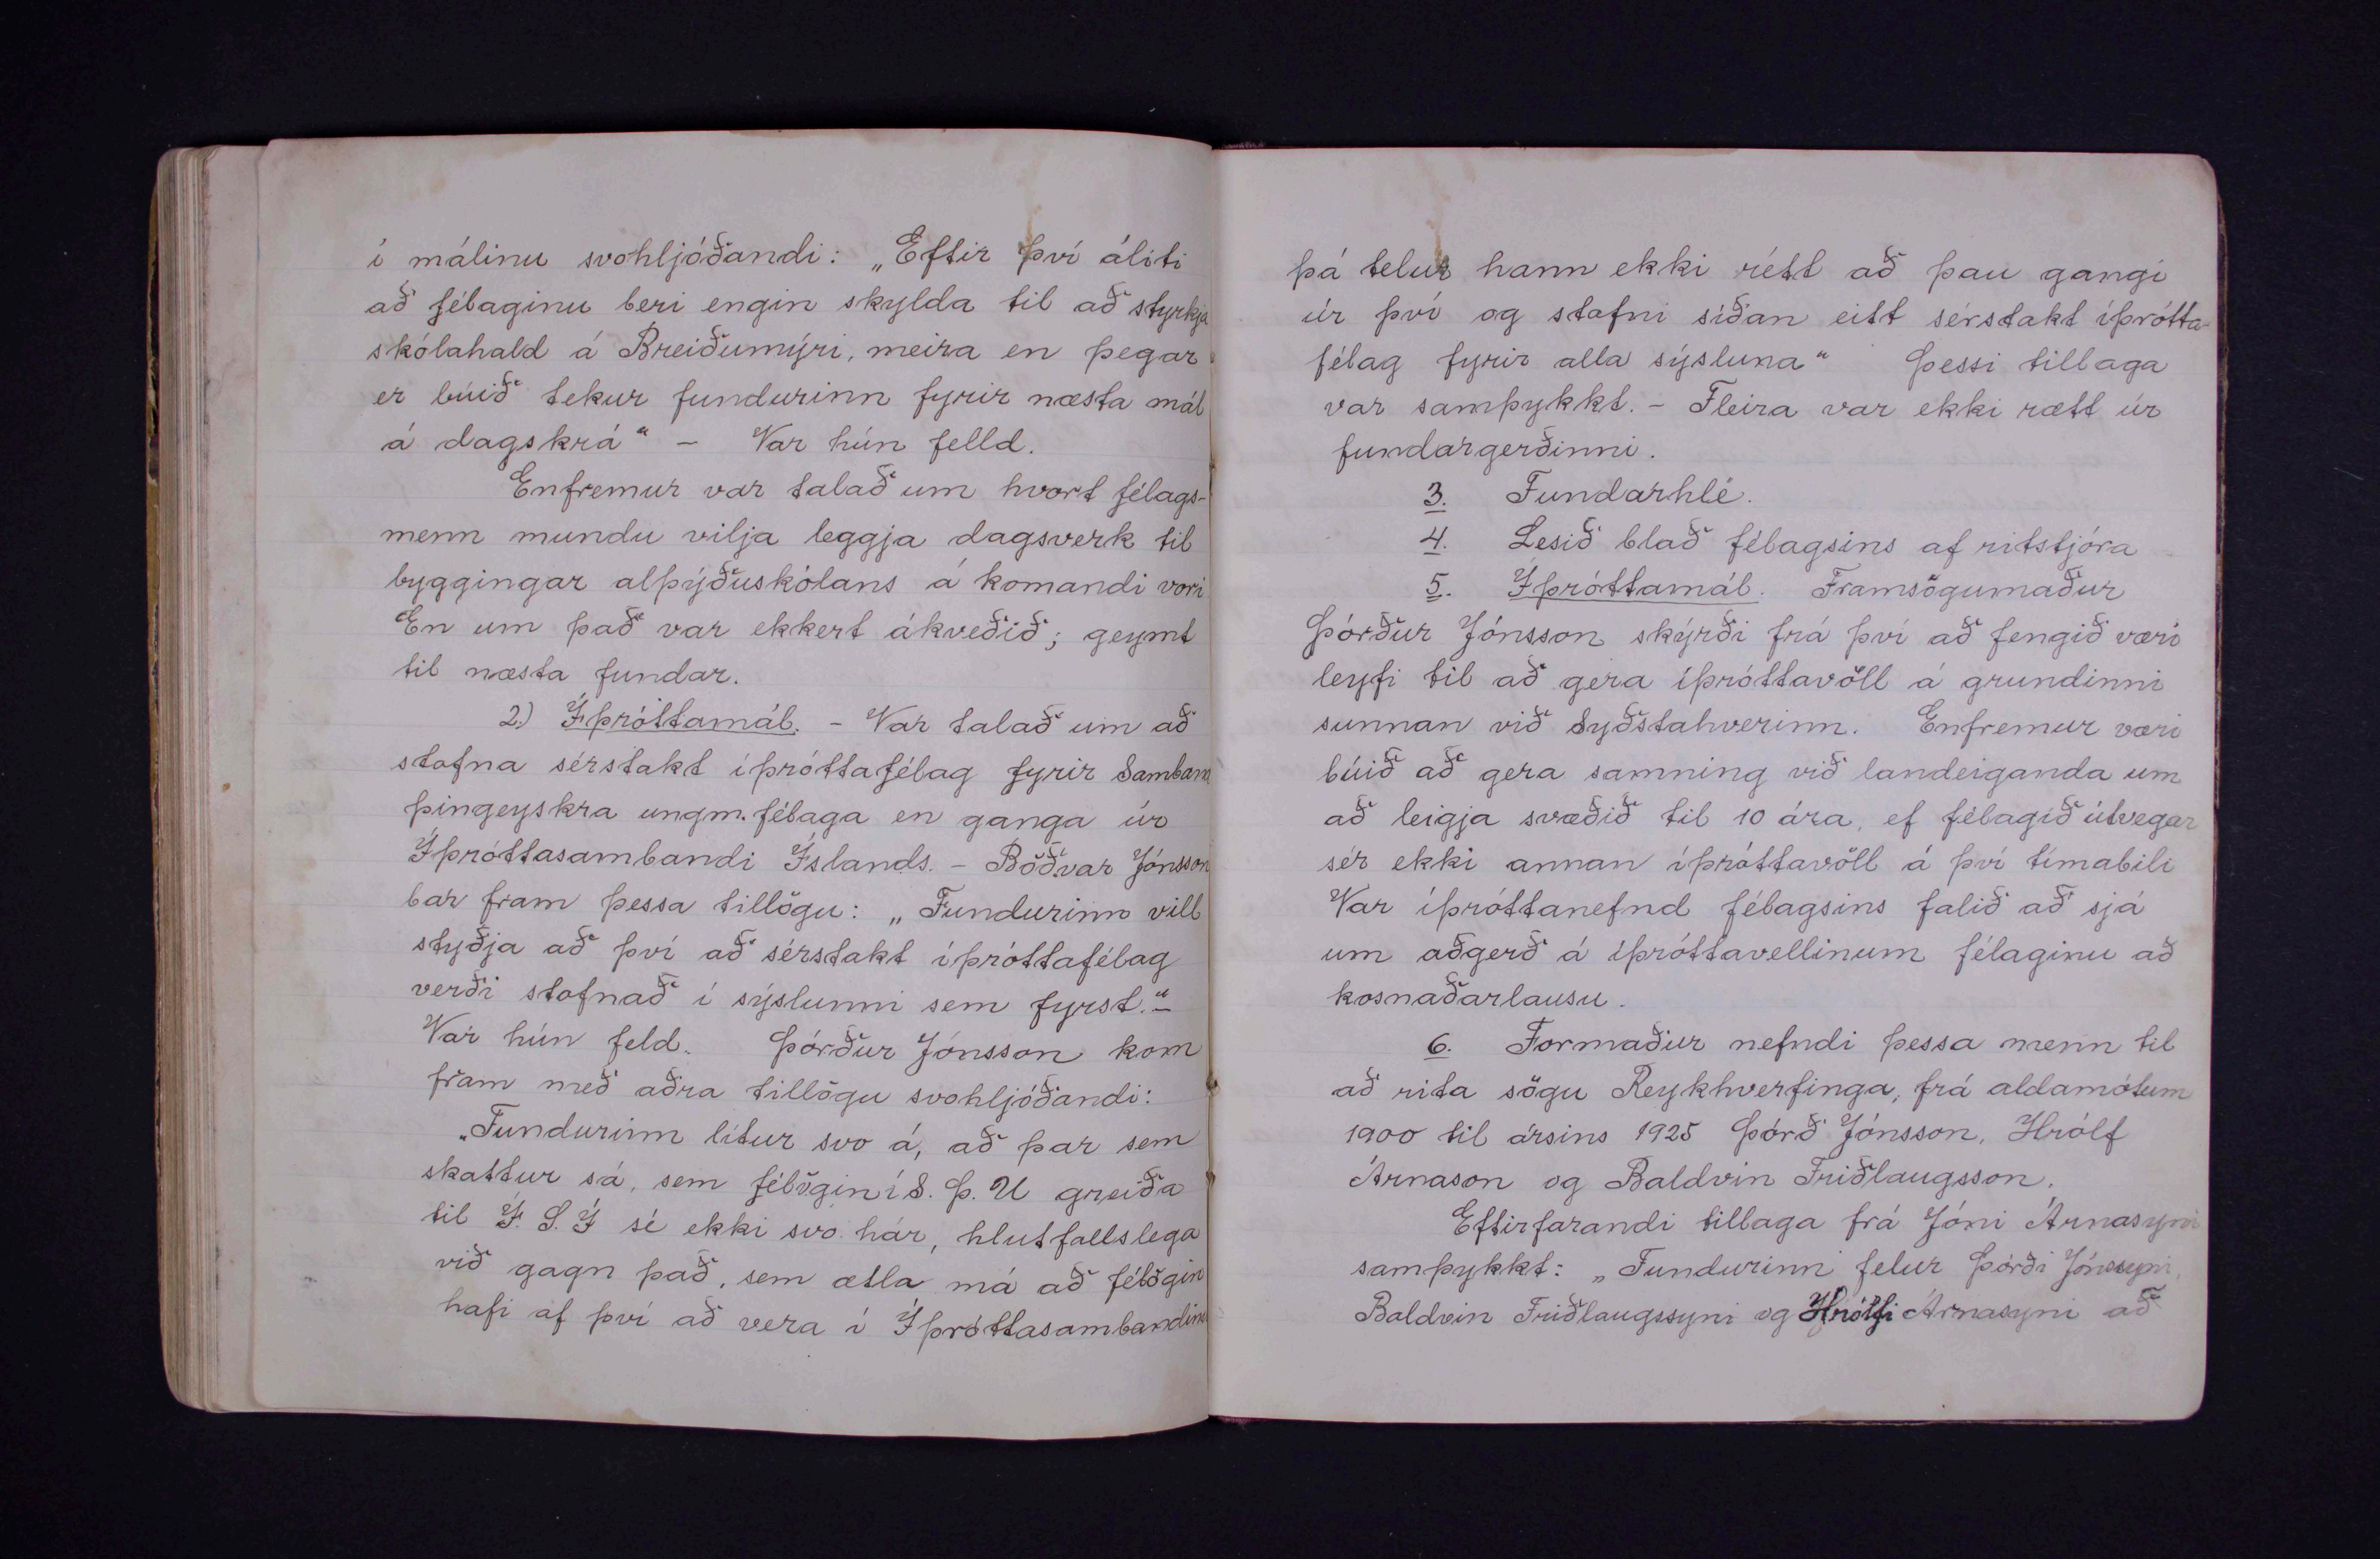 í málinu svohljóðandi: „Eftir því áliti
að félaginu beri engin skylda til að styrkja
skólahald á Breiðumýri, meira en þegar
er búið tekur fundurinn fyrir næsta mál
á dagskrá“ – Var hún felld.
Enfremur var talað um hvort félags-
menn mundu vilja leggja dagsverk til
byggingar alþýðuskólans á komandi vori
En um það var ekkert ákveðið; geymt
til næsta fundar.
2.) Íþróttamál. – Var talað um að
stofna sérstakt íþróttafélag fyrir Samban
þingeyskra ungm.félaga en ganga úr
Íþróttasambandi Íslands. – Böðvar Jónsson
bar fram þessa tillögu: „Fundurinn vill
styðja að því að sérstakt íþróttafélag
verði stofnað í sýslunni sem fyrst.“ –
Var hún feld. Þórður Jónsson kom
fram með aðra tillögu svohljóðandi:
„Fundurinn lítur svo á, að þar sem
skattur sá, sem félögin í S. Þ. U greiða
til Í. S. Í sé ekki svo hár, hlutfallslega
við gagn það, sem ætla má að félögin
hafi af því að vera í Íþróttasambandinu
þá telur hann ekki rétt að þau gangi
úr því og stofni síðan eitt sérstakt íþrótta-
félag fyrir alla sýsluna“ Þessi tillaga
var samþykkt. – Fleira var ekki rætt úr
fundargerðinni.
3. Fundarhlé.
4. Lesið blað félagsins af ritstjóra
5. Íþróttamál. Framsögumaður
Þórður Jónsson skýrði frá því að fengið væri
leyfi til að gera íþróttavöll á grundinni
sunnan við Syðstahverinn. Enfremur væri
búið að gera samning við landeiganda um
að leigja svæðið til 10 ára, ef félagið útvegar
sér ekki annan íþróttavöll á því tímabili
Var íþróttanefnd félagsins falið að sjá
um aðgerð á íþróttavellinum félaginu að
kosnaðarlausu.
6. Formaður nefndi þessa menn til
að rita sögu Reykhverfinga, frá aldamótum
1900 til ársins 1925 Þórð Jónsson, Hrólf
Árnason og Baldvin Friðlaugsson.
Eftirfarandi tillaga frá Jóni Árnasyni
samþykkt: „Fundurinn felur Þórði Jónssyni,
Baldvin Friðlaugssyni og Hrólfi Árnasyni að